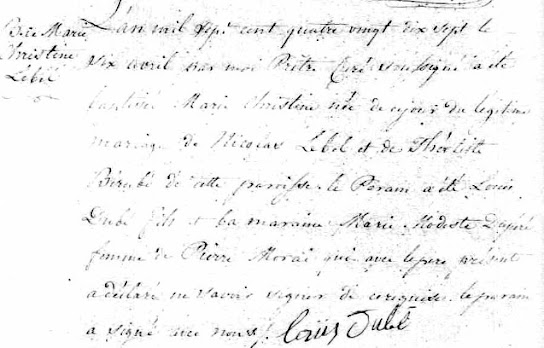 Bt.e Marie
Christine
Lebel
L'an mil sept cent quatre vingt dix sept le
six avril par moi Prêtre Curé soussigné a été
baptisée Marie Christine née de ce jour du legitime
mariage de Nicolas Lebel et de Théotiste
Bérubé de cette paroisse. le Parain a été Louis
Dubé fils et la maraine Marie Modeste Dupéré
femme de Pierre Morai qui avec le pere présent
a déclaré ne savoir signer de ce requise. le parain
a signé avec nous. Louis Dubé